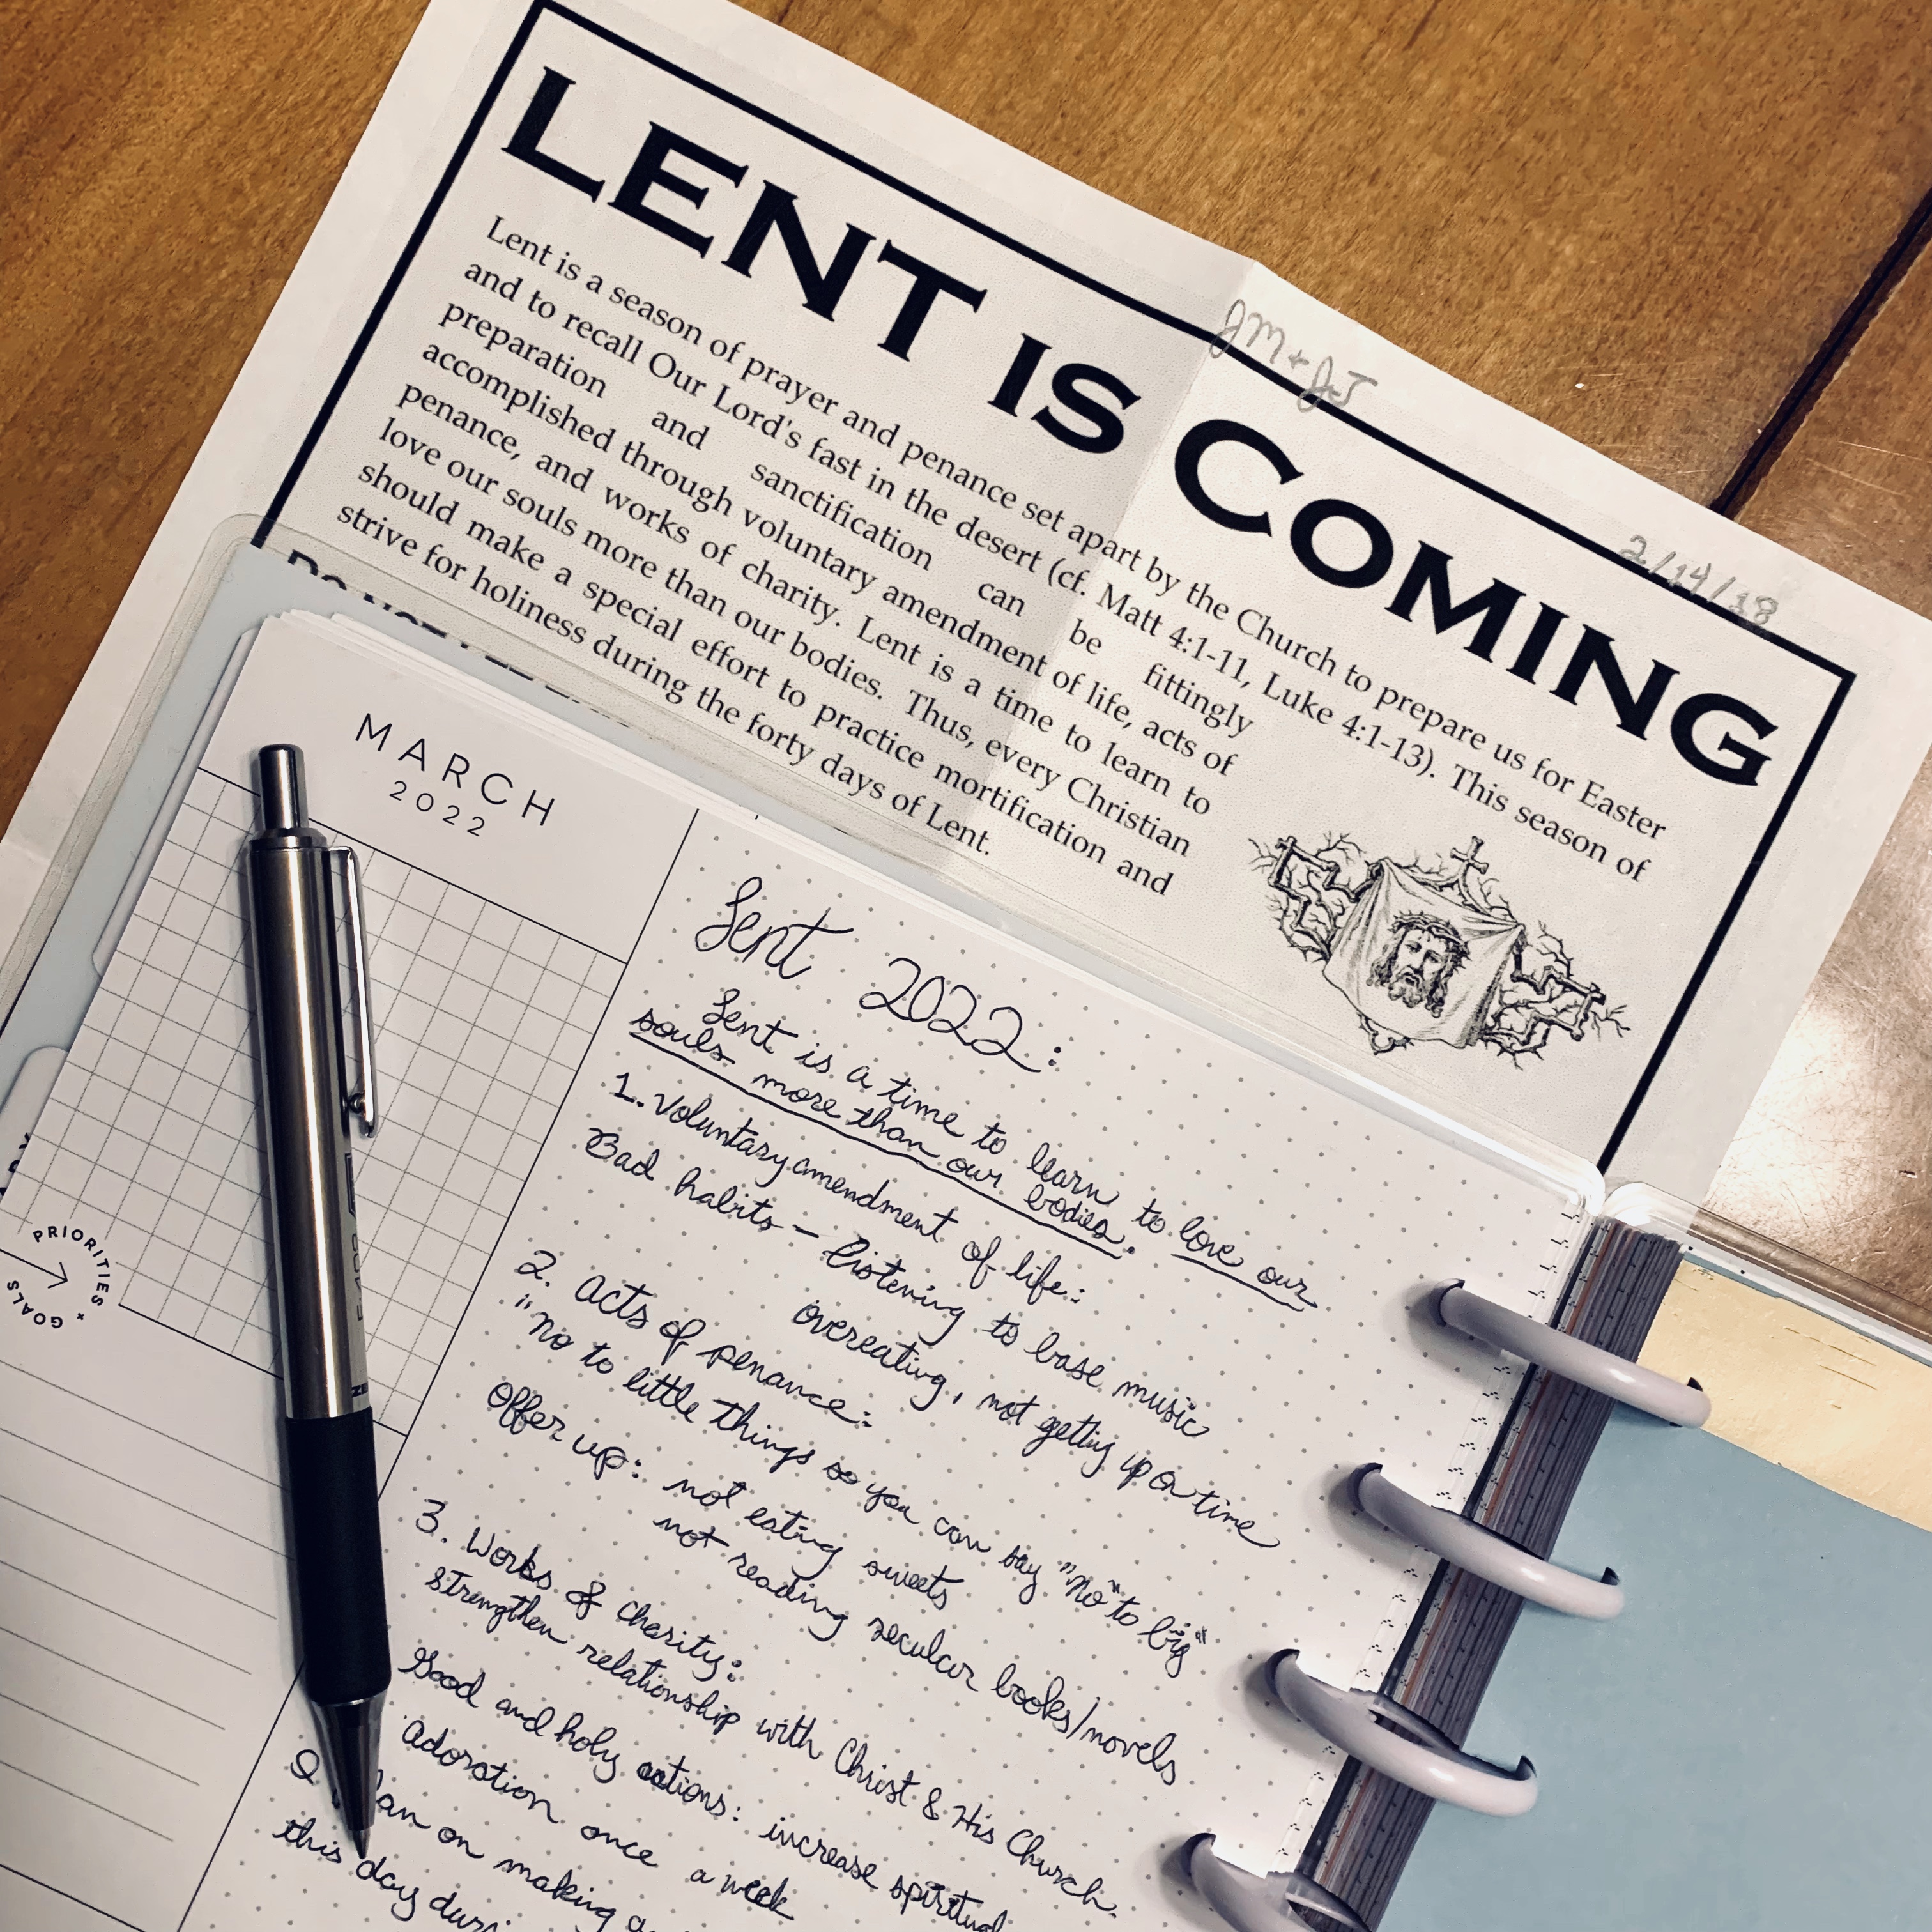 LENT IS COMING
JM + JT
2/14/18
Lent is a season of prayer and penance set apart by the Church to prepare us for Easter
and to recall Our Lord's fast in the desert (cf. Matt 4:1-11, Luke 4:1-13). This season of
preparation and sanctification can be fittingly
accomplished through voluntary amendment of life, acts of
penance, and works of charity. Lent is a time to learn to
love our souls more than our bodies. Thus, every Christian
should make a special effort to practice mortification and
strive for holiness during the forty days of Lent.
DO NOT
MARCH
2022
PRIORITIES + GOALS
Lent 2022:
Lent is a time to learn to love our
souls more than our bodies.
1. Voluntary amendment of life:
Bad habits - listening to base music
overeating, not getting up on time
2. Acts of penance:
"No to little things so you can say "No" to big"
Offer up: not eating sweets
not reading secular books/novels
3. Works of charity:
Strengthen relationship with Christ & His Church.
Good and holy actions: increase spiritual
Adoration once a week
on making
this day